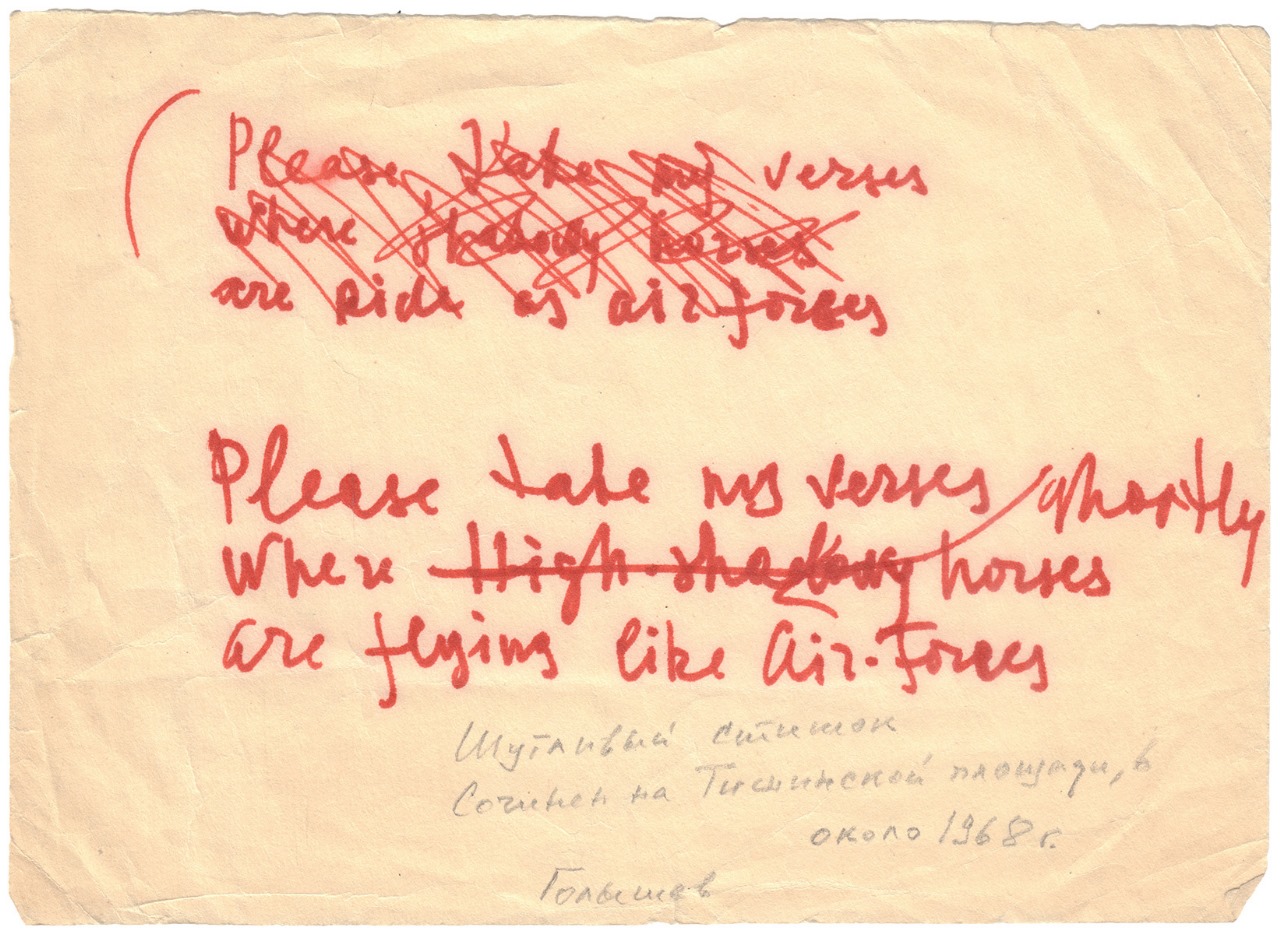 Please take my verses
where shadowy horses
are ride as air forces
Please take my verses ghostly
Where High-shadowy horses
are flying like Air-Forces
Шутливый стишок
Сочинен на Тишинской площади, в
около 1968 г.
Голышев